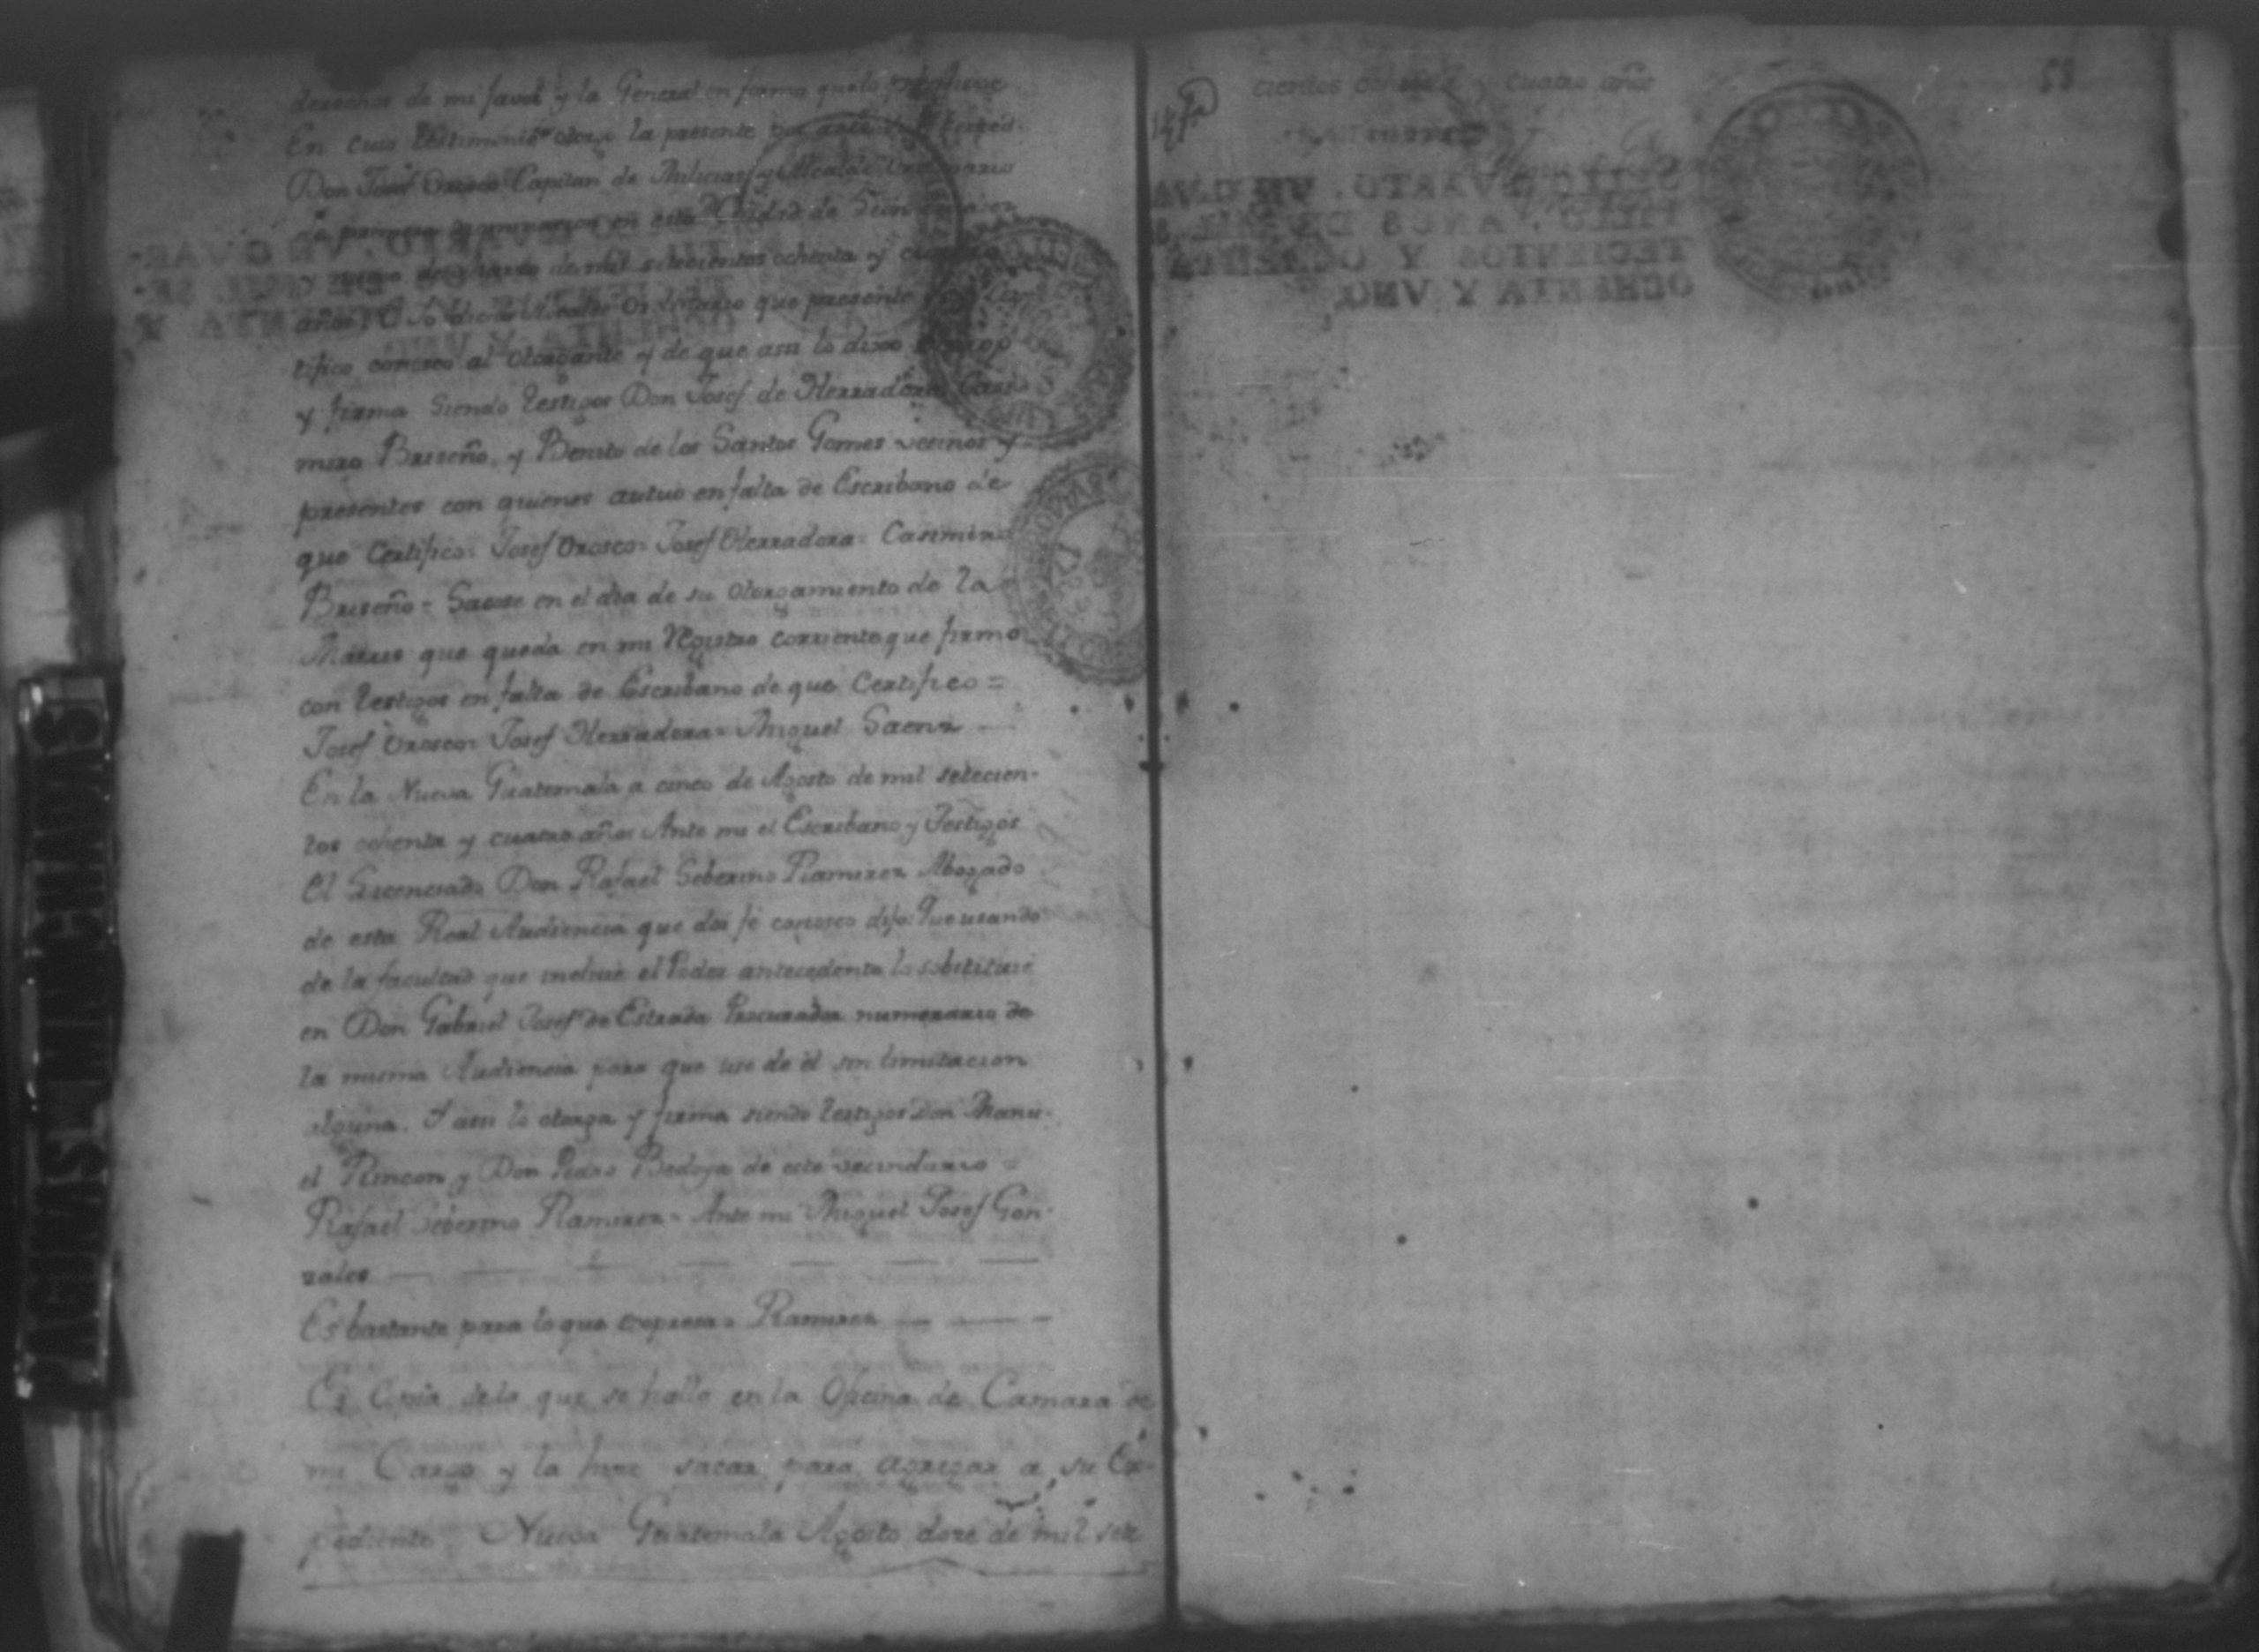 derechos de mi favor y la General en forma que lo prohive
En cuio testimonio otorgo la presente por ante
Don Josef Orosco Capitan de Milicias y Alcalde Ordinario
en esta Ciudad de
y nueve de Marzo de mil setecientos ochenta y
años. E Yo dicho Alcalde Ordinario que presente
tifico conosco al otorgante y de que asi lo dixo
y firma siendo testigos Don Josef de Herradora Casi-
miro Briseño, y Benito de los Santos Gomes vecinos y
presentes con quienes autuo en falta de Escribano de
que Certifico= Josef Orosco= Josef Herradora= Casimiro
Briseño= Sacose en el dia de su otorgamiento de la
Matris que queda en mi Registro corriente que firmo
con testigos en falta de Escribano de que Certifico=
Josef Orosco= Josef Herradora= Miguel Saenz
En la Nueva Guatemala a cinco de Agosto de mil setecien-
tos ochenta y cuatro años Ante mi el Escribano y Testigos
El Licenciado Don Rafael Seberino Ramirez Abogado
de esta Real Audiencia que doi fé conosco dijo: Que usando
de la facultad que incluie el Poder antecedente lo sobstituie
en Don Gabriel Josef de Estrada Procurador numerario de
la misma Audiencia para que use de él sin limitacion
alguna. Y asi lo otorga y firma siendo testigos Don Manu-
el Rincon y Don Pedro Bedoya de este vecindario =
Rafael Seberino Ramirez= Ante mi Miguel Josef Gon-
zales
Es bastante para lo que expresa= Ramirez
Es Copia dela que se halla en la Oficina de Camara de
mi Cargo y la hize sacar para agregar a su Ex-
pediente. Nueva Guatemala Agosto doze de mil sete
cientos ochenta y cuatro años
58
PAGINAS MANCHADAS